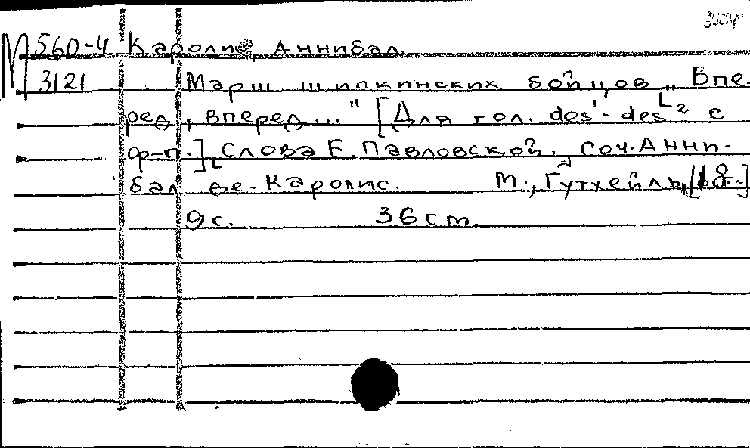 М 560-4 Каролис, Аннибал.
3121 Марш шипкинских бойцов „Впе-
ред, вперед..." [Для гол. des¹-des² с
ф-п.] Слова Е. Павловской. Соч. Анни-
бал де-Каролис. М., Гутхейль,
9 с. 36 см.